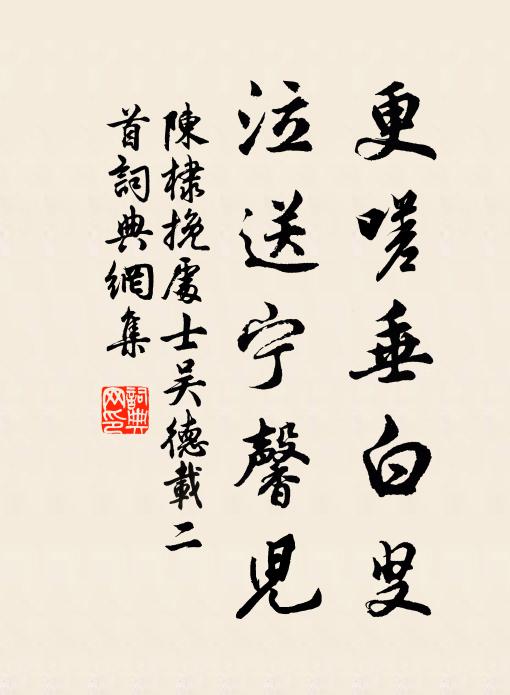 更嗟垂白叟
泣送宁馨児
陳棣挽處士吴德載二
首詞典網集
詞典网印